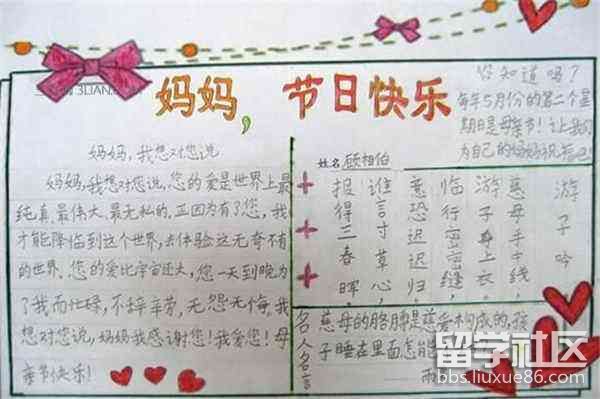 妈妈,节日快乐
3LIAN
你知道吗?
每年5月份的第二个星
期日是母亲节!让我们
为自己的妈妈祝福吧!
妈妈,我想对您说
妈妈,我想对您说,您的爱是世界上最
纯真、最伟大、最无私的,正因为有了您,我
才能降临到这个世界,去体验这无奇不有
的世界。您的爱比宇宙还大,您一天到晚为
了我而忙碌,不辞辛劳,无怨无悔,我
想对您说,妈妈我感谢您!我爱您!母
亲节快乐!
姓名 顾相伯
游子吟
慈母手中线,
游子身上衣。
临行密密缝,
意恐迟迟归。
谁言寸草心,
报得三春晖。
名人名言
慈母的胳膊是慈爱构成的,孩
子睡在里面怎能
雨
留学社区
bbs.liuxue86.com